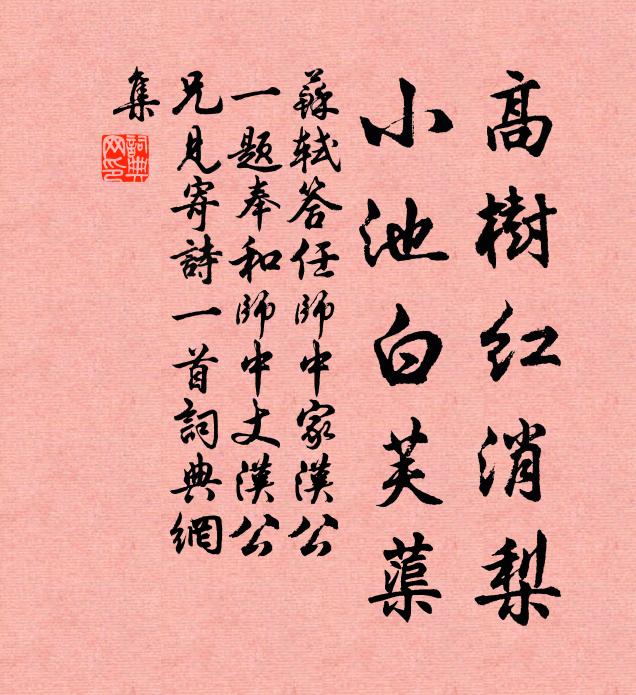 高樹紅消梨
小池白芙蕖
蘇軾答任師中家漢公
一題奉和師中丈漢公
兄見寄詩一首詞典網
集
詞典
網印